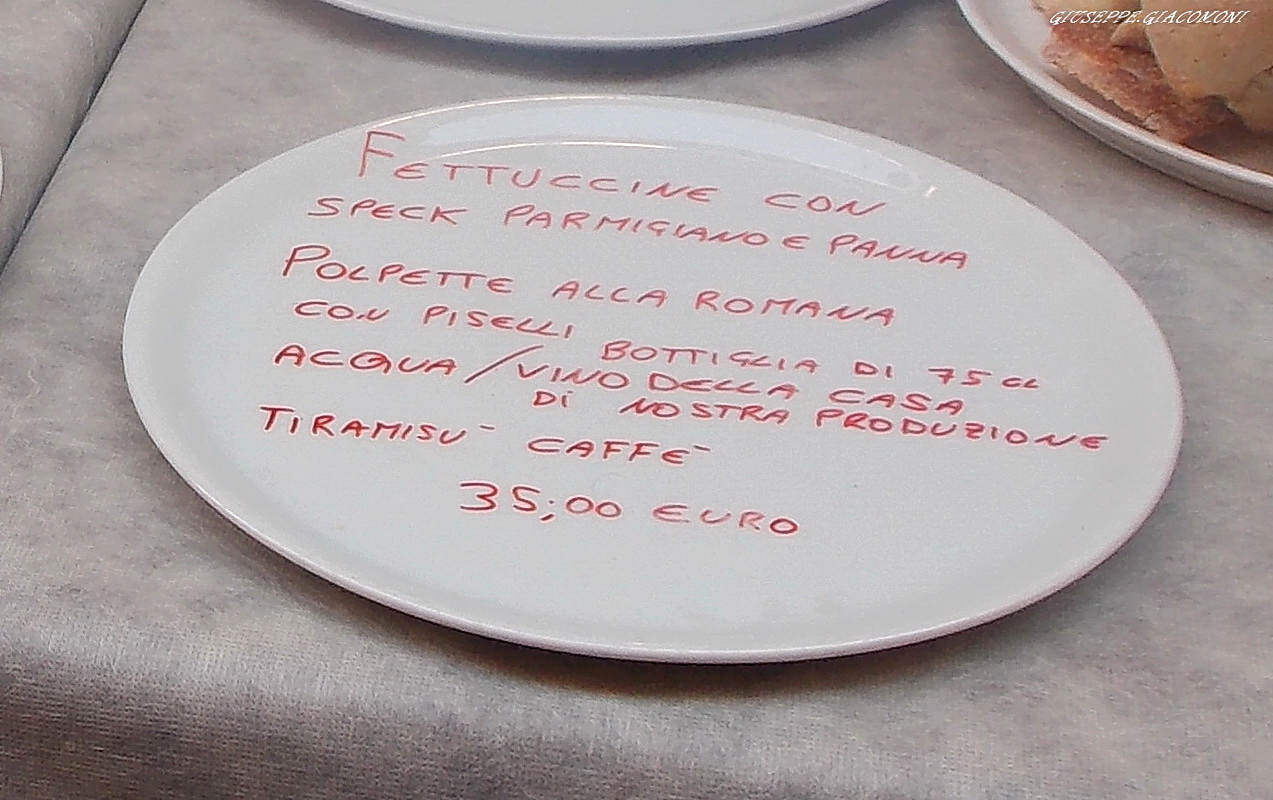 GIUSEPPE.GIACOMONI
FETTUCCINE CON
SPECK PARMIGIANO E PANNA
POLPETTE ALLA ROMANA
CON PISELLI
BOTTIGLIA DI 75 CL
ACQUA / VINO DELLA CASA
DI NOSTRA PRODUZIONE
TIRAMISU' CAFFE'
35,00 EURO